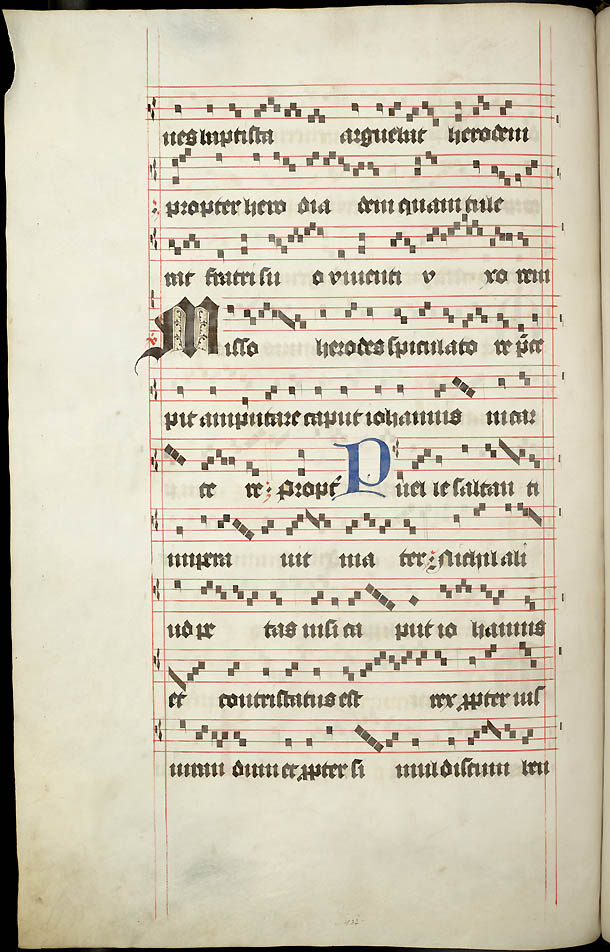 nes baptista arguebat herodem
propter hero dia dem quam tule
rat fratri su o viuenti v xo rem
Misso herodes spiculato re p̄ce
pit amputare caput iohannis in car
ce re : Propt̄ Puel le saltan ti
impera uit ma ter : Nichil ali
ud pe tas nisi ca put io hannis
et contristatus est rex ꝓpter ius
iuran dum et ꝓpter si mul discum ben